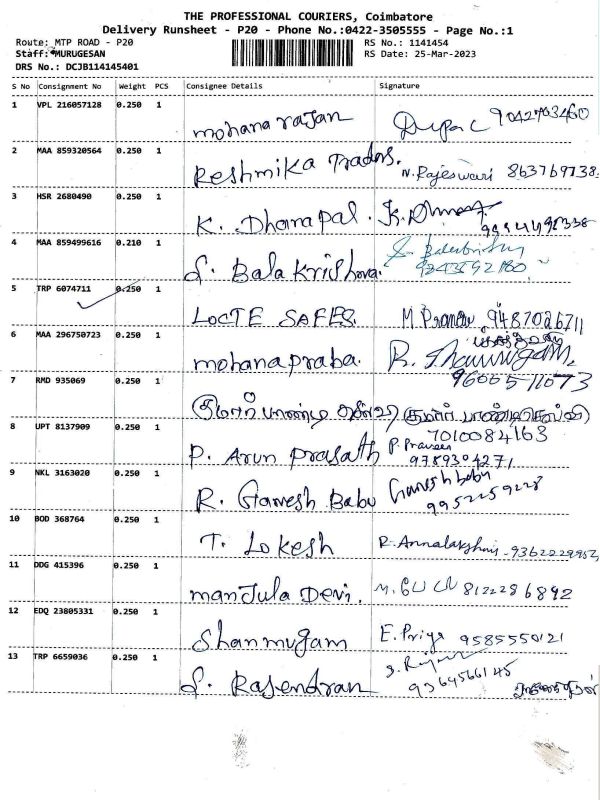 THE PROFESSIONAL COURIERS, Coimbatore
Delivery Runsheet - P20 - Phone No.:0422-3505555 - Page No.:1
Route: MTP ROAD - P20 RS No.: 1141454
Staff: *MURUGESAN RS Date: 25-Mar-2023
DRS No.: DCJB114145401
S No Consignment No Weight PCS Consignee Details Signature
1 VPL 216057128 0.250 1
mohana rajan Dupac 9042703460
2 MAA 859320564 0.250 1
Reshmika Traders. N.Rajeswari 863769738
3 HSR 2680490 0.250 1
K. Dhanapal.
4 MAA 859499616 0.210 1
S. Bala Krishna.
5 TRP 6074711 0.250 1
LOCTE SAFES. M. Pranav 9487026711
6 MAA 296750723 0.250 1
mohanapraba. R. Shanmugam
9600511073
7 RMD 935069 0.250 1
8 UPT 8137909 0.250 1 7010084163
P. Arun prasath P Praveen
9789304271
9 NKL 3163020 0.250 1
R. Ganesh Babu Ganesh babu
9952259228
10 BOD 368764 0.250 1
T. Lokesh R. Annalakshmi - 9362229952
11 DDG 415396 0.250 1
manjula Devi. 8122286892
12 EDQ 23805331 0.250 1
Shanmugam E. Priya 9585550121
13 TRP 6659036 0.250 1
S. Rajendran 9364566145